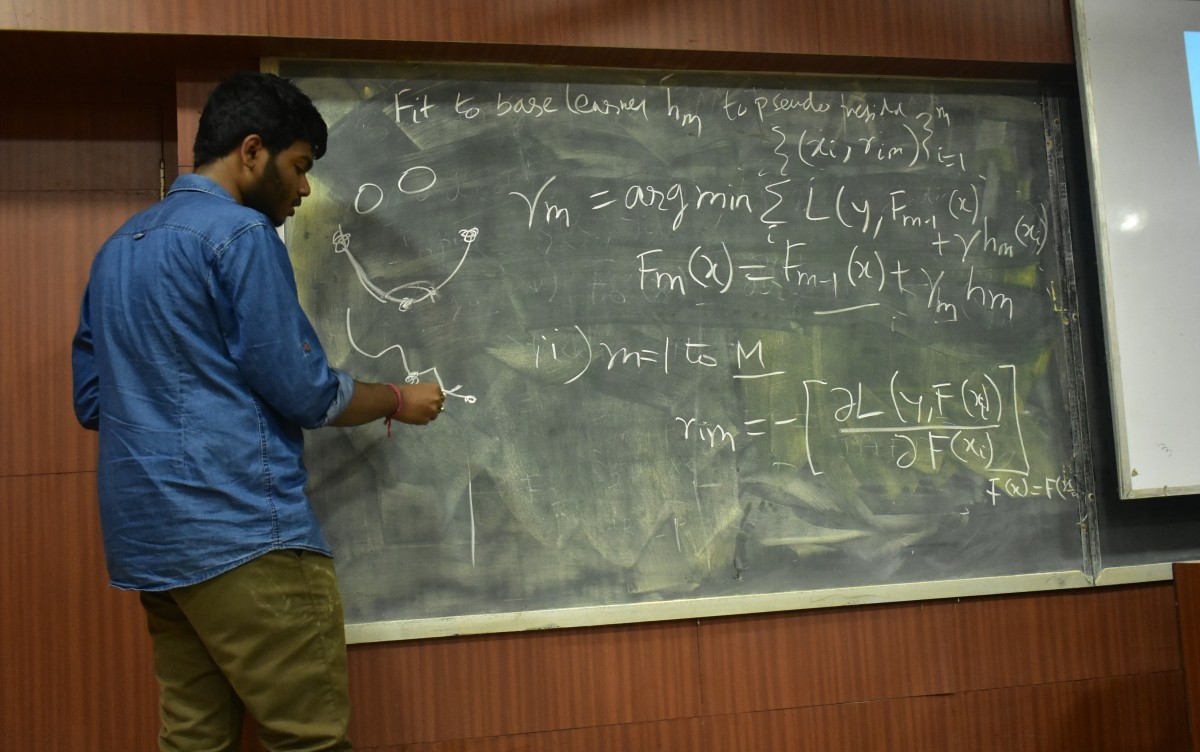 Fit to base learner hm to pseudo
{(xi, rim)}^n_i=1
γm = argmin Σ_i L(y, Fm-1(x)
+ γhm(xi)
Fm(x) = Fm-1(x) + γm hm
ii) m=1 to M
rim = - [∂L(y,F(xi)) / ∂F(xi)]
F(x)=F